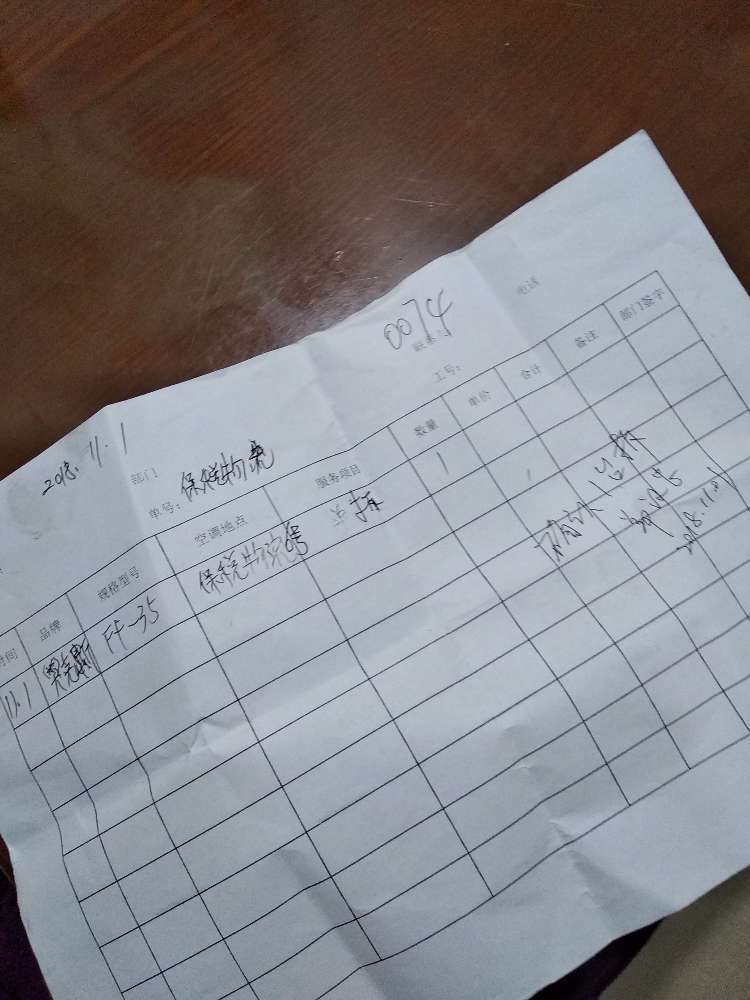 2018.11.1
部门 保税物流
0074
联系
电话
单号：
工号：
时间 品牌 规格型号 空调地点 服务项目 数量 单价 合计 备注 部门签字
11.1 奥克斯 FF-35 保税物流 号 拆 1
确认1台拆
2018.11.01